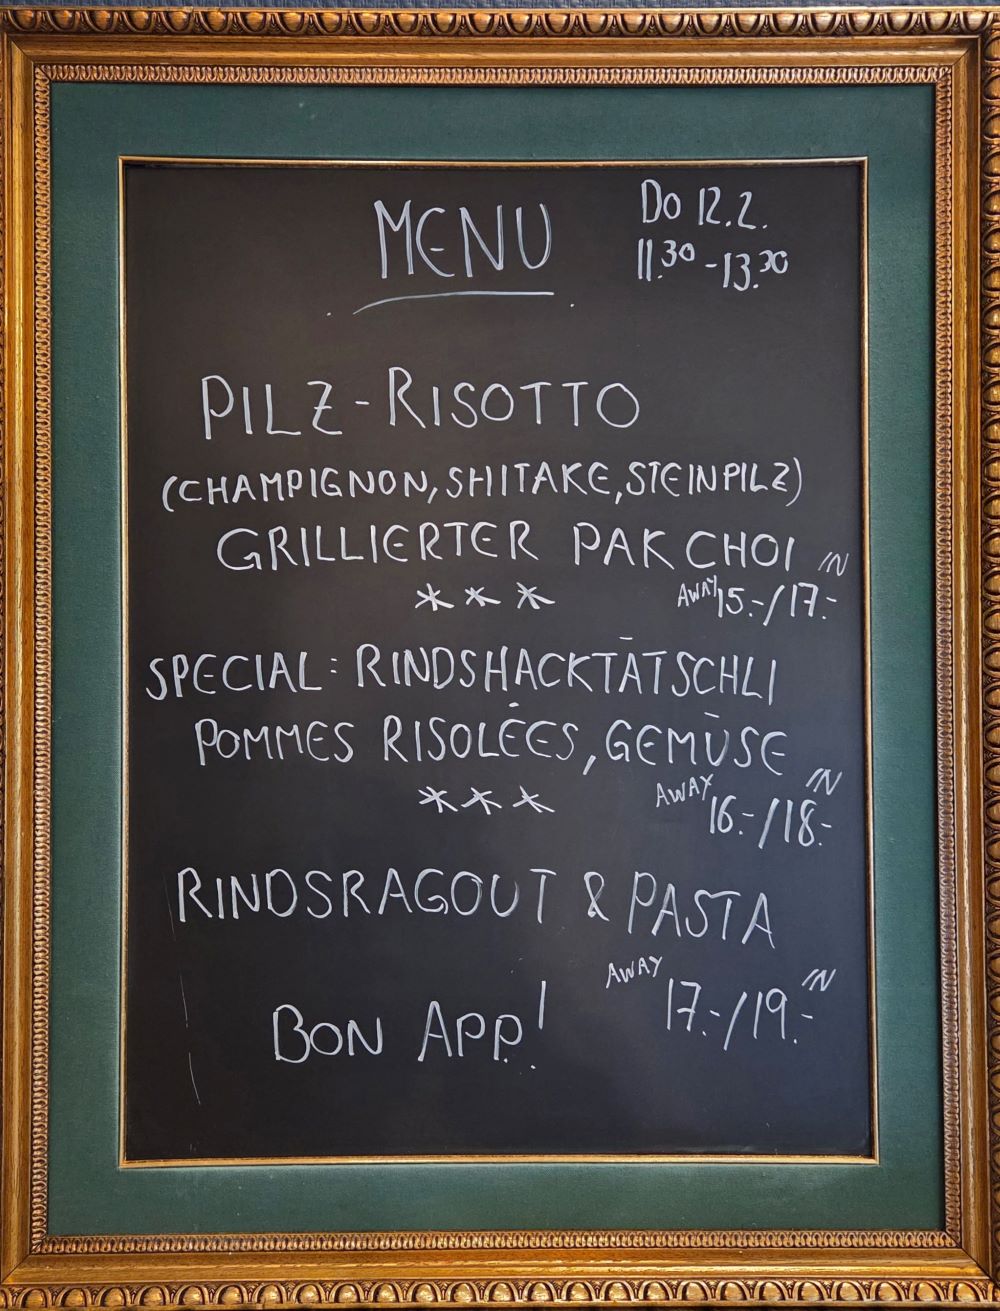 MENU
DO 12.2.
11.30 - 13.30
PILZ-RISOTTO
(CHAMPIGNON, SHITAKE, STEINPILZ)
GRILLIERTER PAK CHOI
AWAY 15.-/17.- IN
***
SPECIAL: RINDSHACKTÄTSCHLI
POMMES RISOLÉES, GEMÜSE
AWAY 16.-/18.- IN
***
RINDSRAGOUT & PASTA
AWAY 17.-/19.- IN
BON APP.!